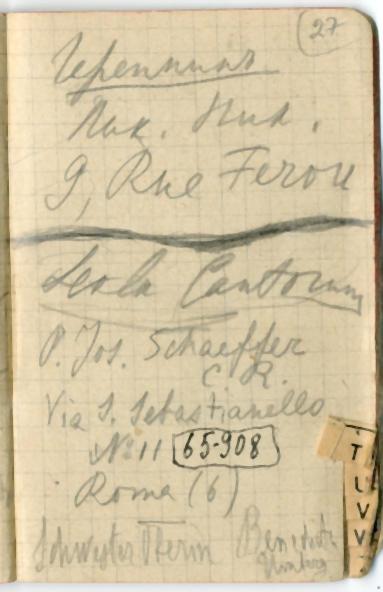 27
Черепнин
Ник. Ник.
9, Rue Ferou
Scola Cantorum
P. Jos. Schaeffer
C. R.
Via S. Sebastianello
№ 11 65-908
Roma (6)
Schwester Oberin
T
U
V
V